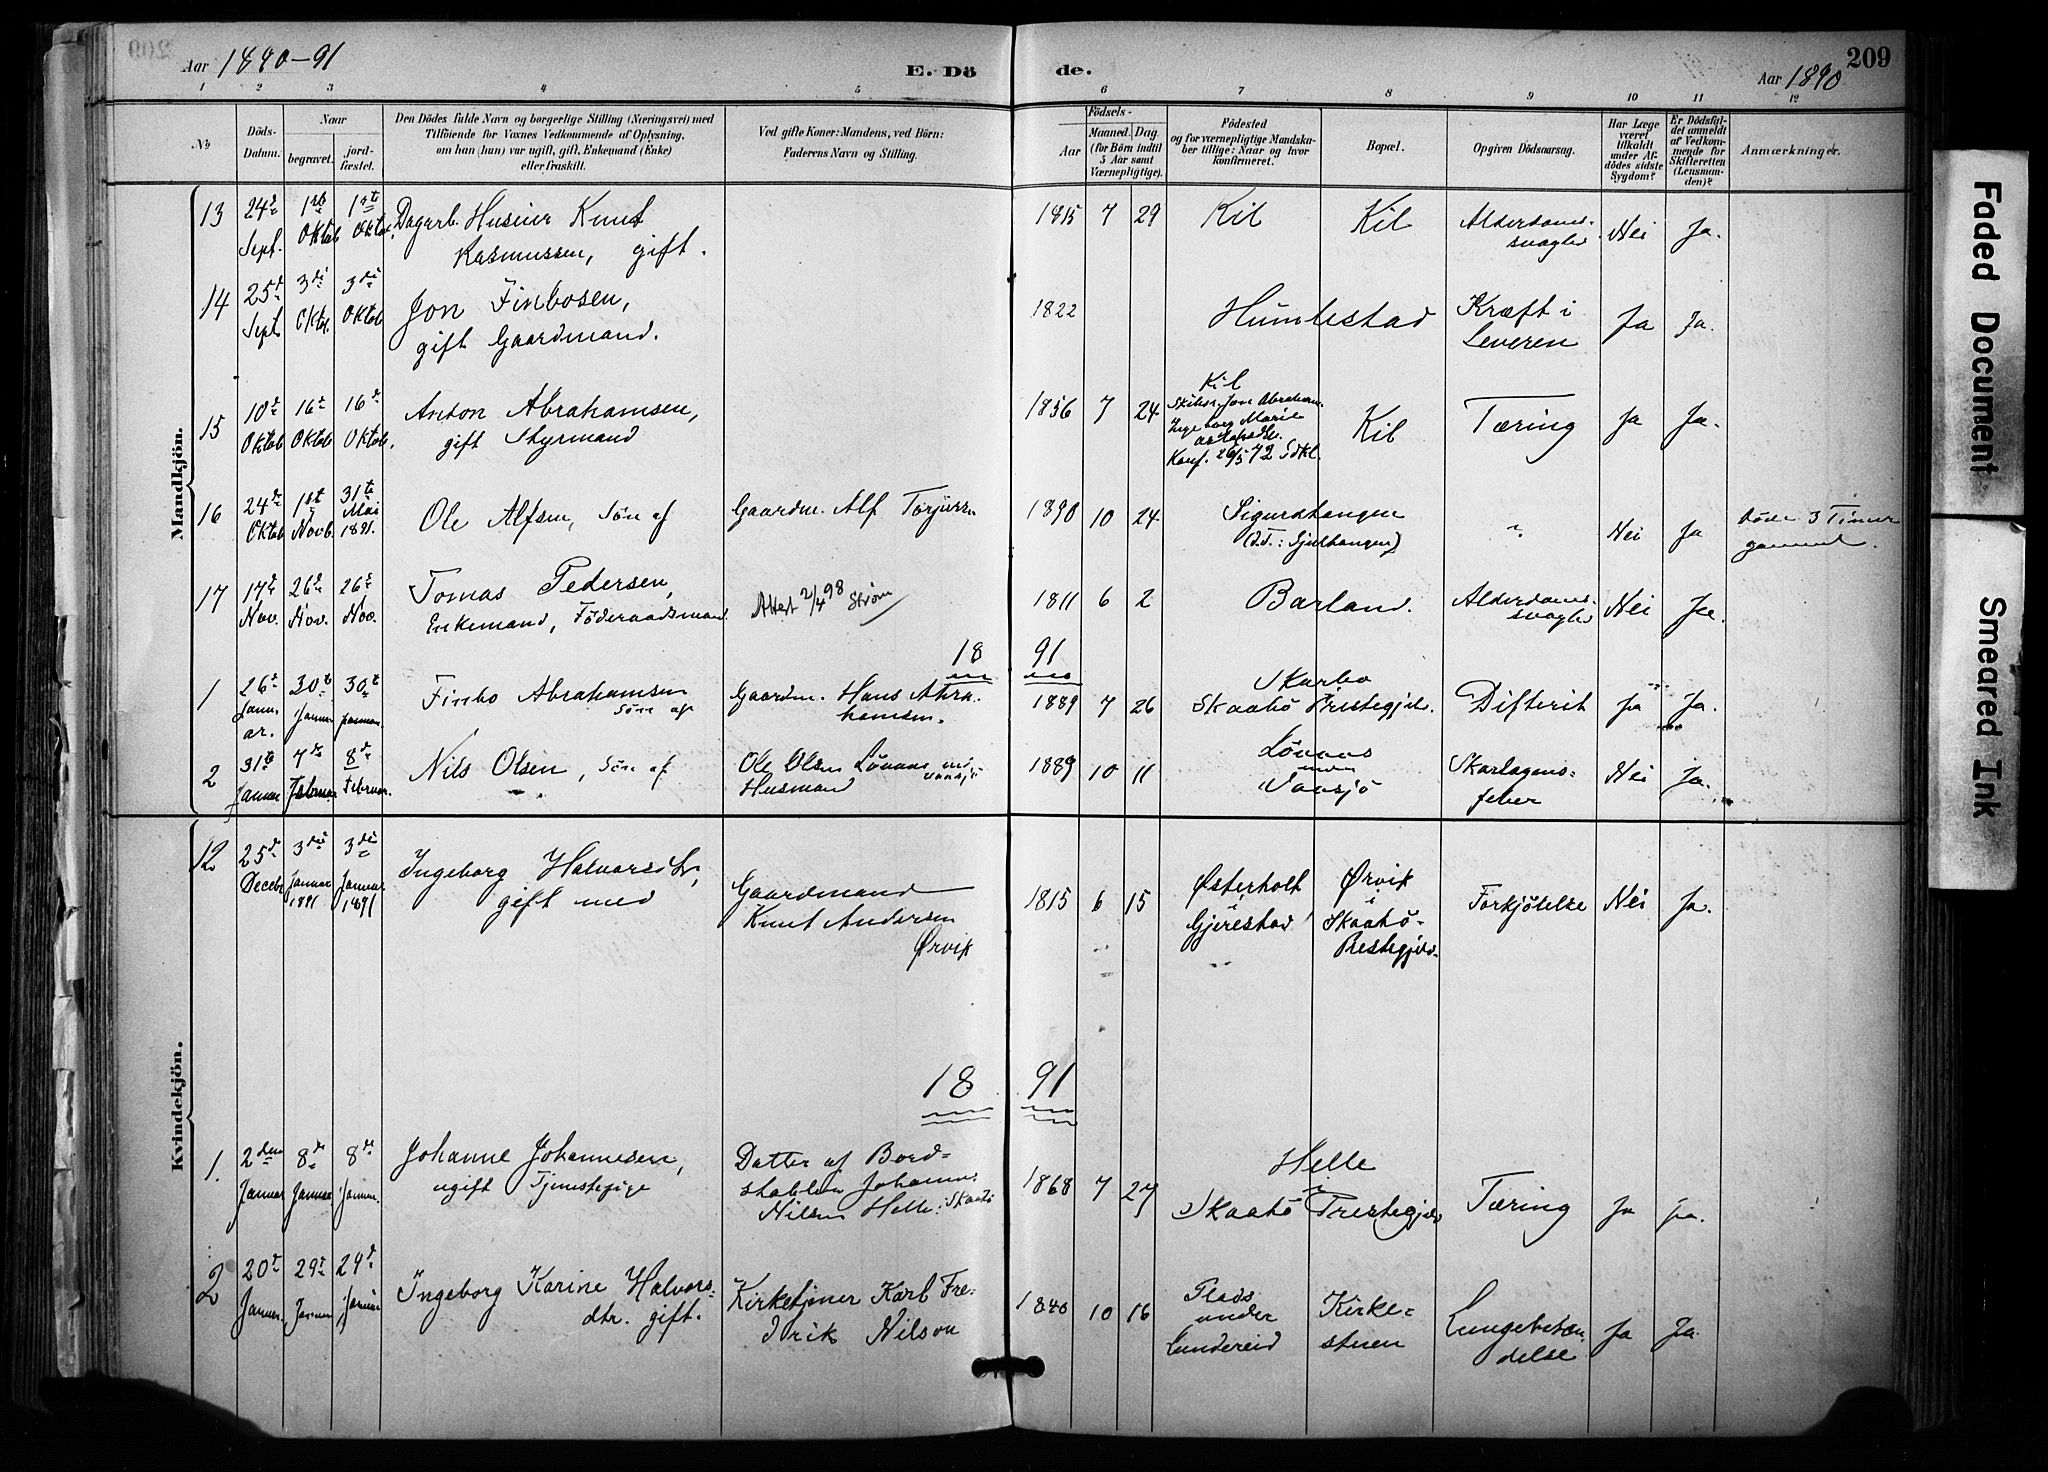 Aar 1890-91 E. Dö de. Aar 1890 209
1 2 3 4 5 6 7 8 9 10 11 12
No Döds-Datum. Naar begravet. jordfæstet. Den Dödes fulde Navn og borgerlige Stilling (Næringsvei) med Tilföiende for Voxnes Vedkommende af Oplysning, om han (hun) var ugift, gift, Enkemand (Enke) eller fraskilt. Ved gifte Koner: Mandens, ved Börn: Faderens Navn og Stilling. Födsels- Aar Maaned. Dag. (for Börn indtil 5 Aar samt Værnepligtige). Födested og for værnepligtige Mandskaber tillige: Naar og hvor konfirmeret. Bopæl. Opgiven Dödsaarsag. Har Læge været tilkaldt under Afdödes sidste Sygdom? Er Dödsfaldet anmeldt af Vedkommende for Skifteretten (Lensmanden)? Anmærkninger.
Mandkjön.
13 24de Sept. 1ste Oktob 1ste Oktob. Dagarb. Husmr Knut Rasmussen, gift. 1815 7 29 Kil Kil Alderdomssvaghed Nei Ja.
14 25de Sept 3die Oktob. 3die Oktob Jon Finbosen, gift Gaardmand. 1822 Humlestad Kræft i Leveren Ja Ja.
15 10de Oktob 16de Oktob 16de Oktob. Anton Abrahamsen, gift Styrmand 1856 7 24 Kil Jon Abraham. Ingeborg Marie Konf. 26/5 72 Kil Tæring Ja Ja.
16 24de Oktob 1ste Novb. 31te Mai 1891. Ole Alfsen, Sön af Gaardm. Alf Torjusen 1890 10 24 " Nei Ja döde 3 Timer gammel.
17 17de Nov. 26de Nov. 26de Nov. Tomas Pedersen, Enkemand, Föderaadsmand. Attest 2/4 98 Strøm 1811 6 2 Barland. Alderdomssvaghed Nei Ja.
18 91
1 26de Januar. 30te Januar 30te Januar. Finbo Abrahamsen Sön af Gaardm. Hans Abrahamsen. 1889 7 26 Skarbo Skaatö Prestegjeld. Difterit Ja Ja.
2 31te Januar 7de Februar 8de Februar. Nils Olsen, Sön af Ole Olsen Husmand 1889 10 11 under Vansjö Skarlagensfeber Nei Ja.
Kvindekjön.
12 25de Decebr 3die Januar 1891 3die Januar 1891 Ingeborg Halvorsdtr, gift med Gaardmand Knut Andersen Ørvik 1815 6 15 Østerholt i Gjerestad Ørvik i Skaatö-Prestegjeld. Forkjölelse Nei Ja.
18 91
1. 2den Januar 8de Januar 8de Januar. Johanne Johannesen, ugift Tjenestepige Datter af Nilsen Helle. Skaatö 1868 7 27 Helle i Skaatö Prestegjeld Tæring Ja Ja.
2 20de Januar. 29de Januar 29de Januar Ingeborg Karine Halvorsdtr. gift. Kirketjener Karl Fredrik Nilsen 1840 10 16 Plads under Lundereid Kirkestuen Lungebetændelse Ja Ja.
Faded Document
Smeared Ink